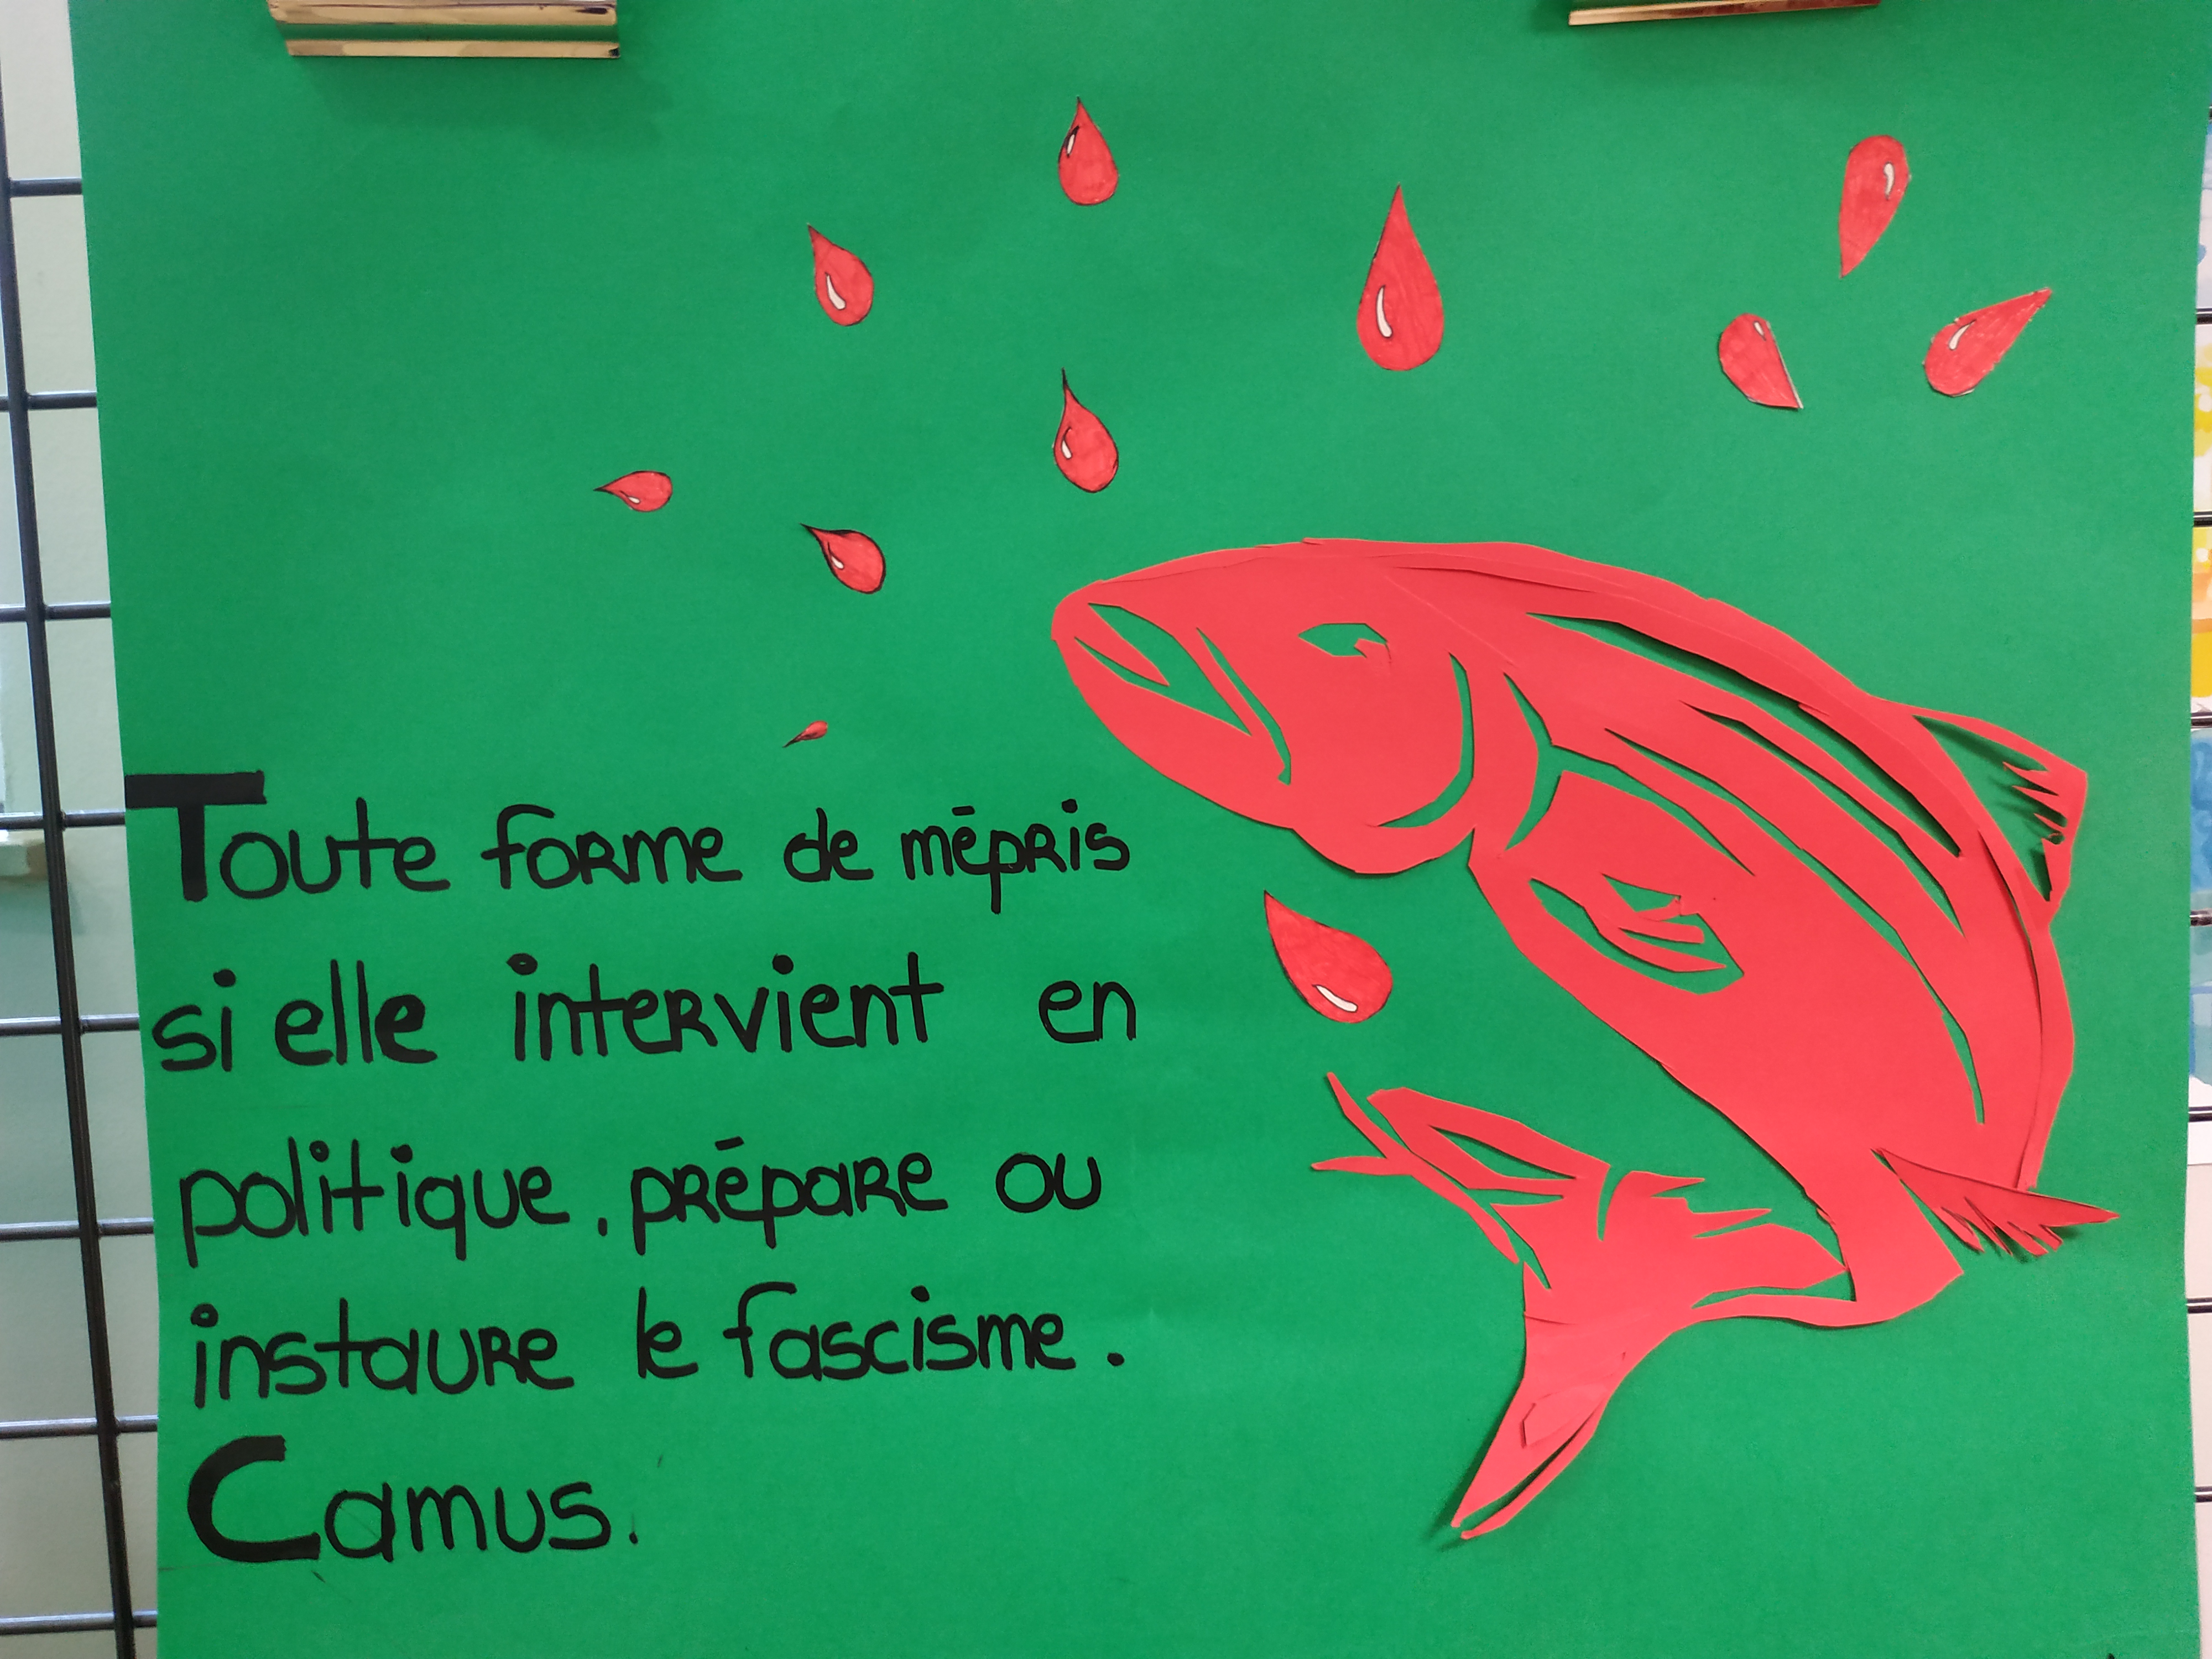 Toute forme de mépris
si elle intervient en
politique, prépare ou
instaure le fascisme.
Camus.